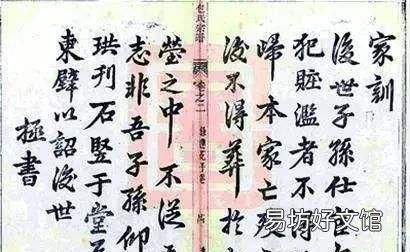 家訓
後世子孫仕
犯贓濫者不
歸本家亡殁
後不得葬於
包氏宗譜
卷之二
塋之中不從
志非吾子孫仰
珙刊石竪于堂
東壁以詔後世
拯書
易坊好文馆